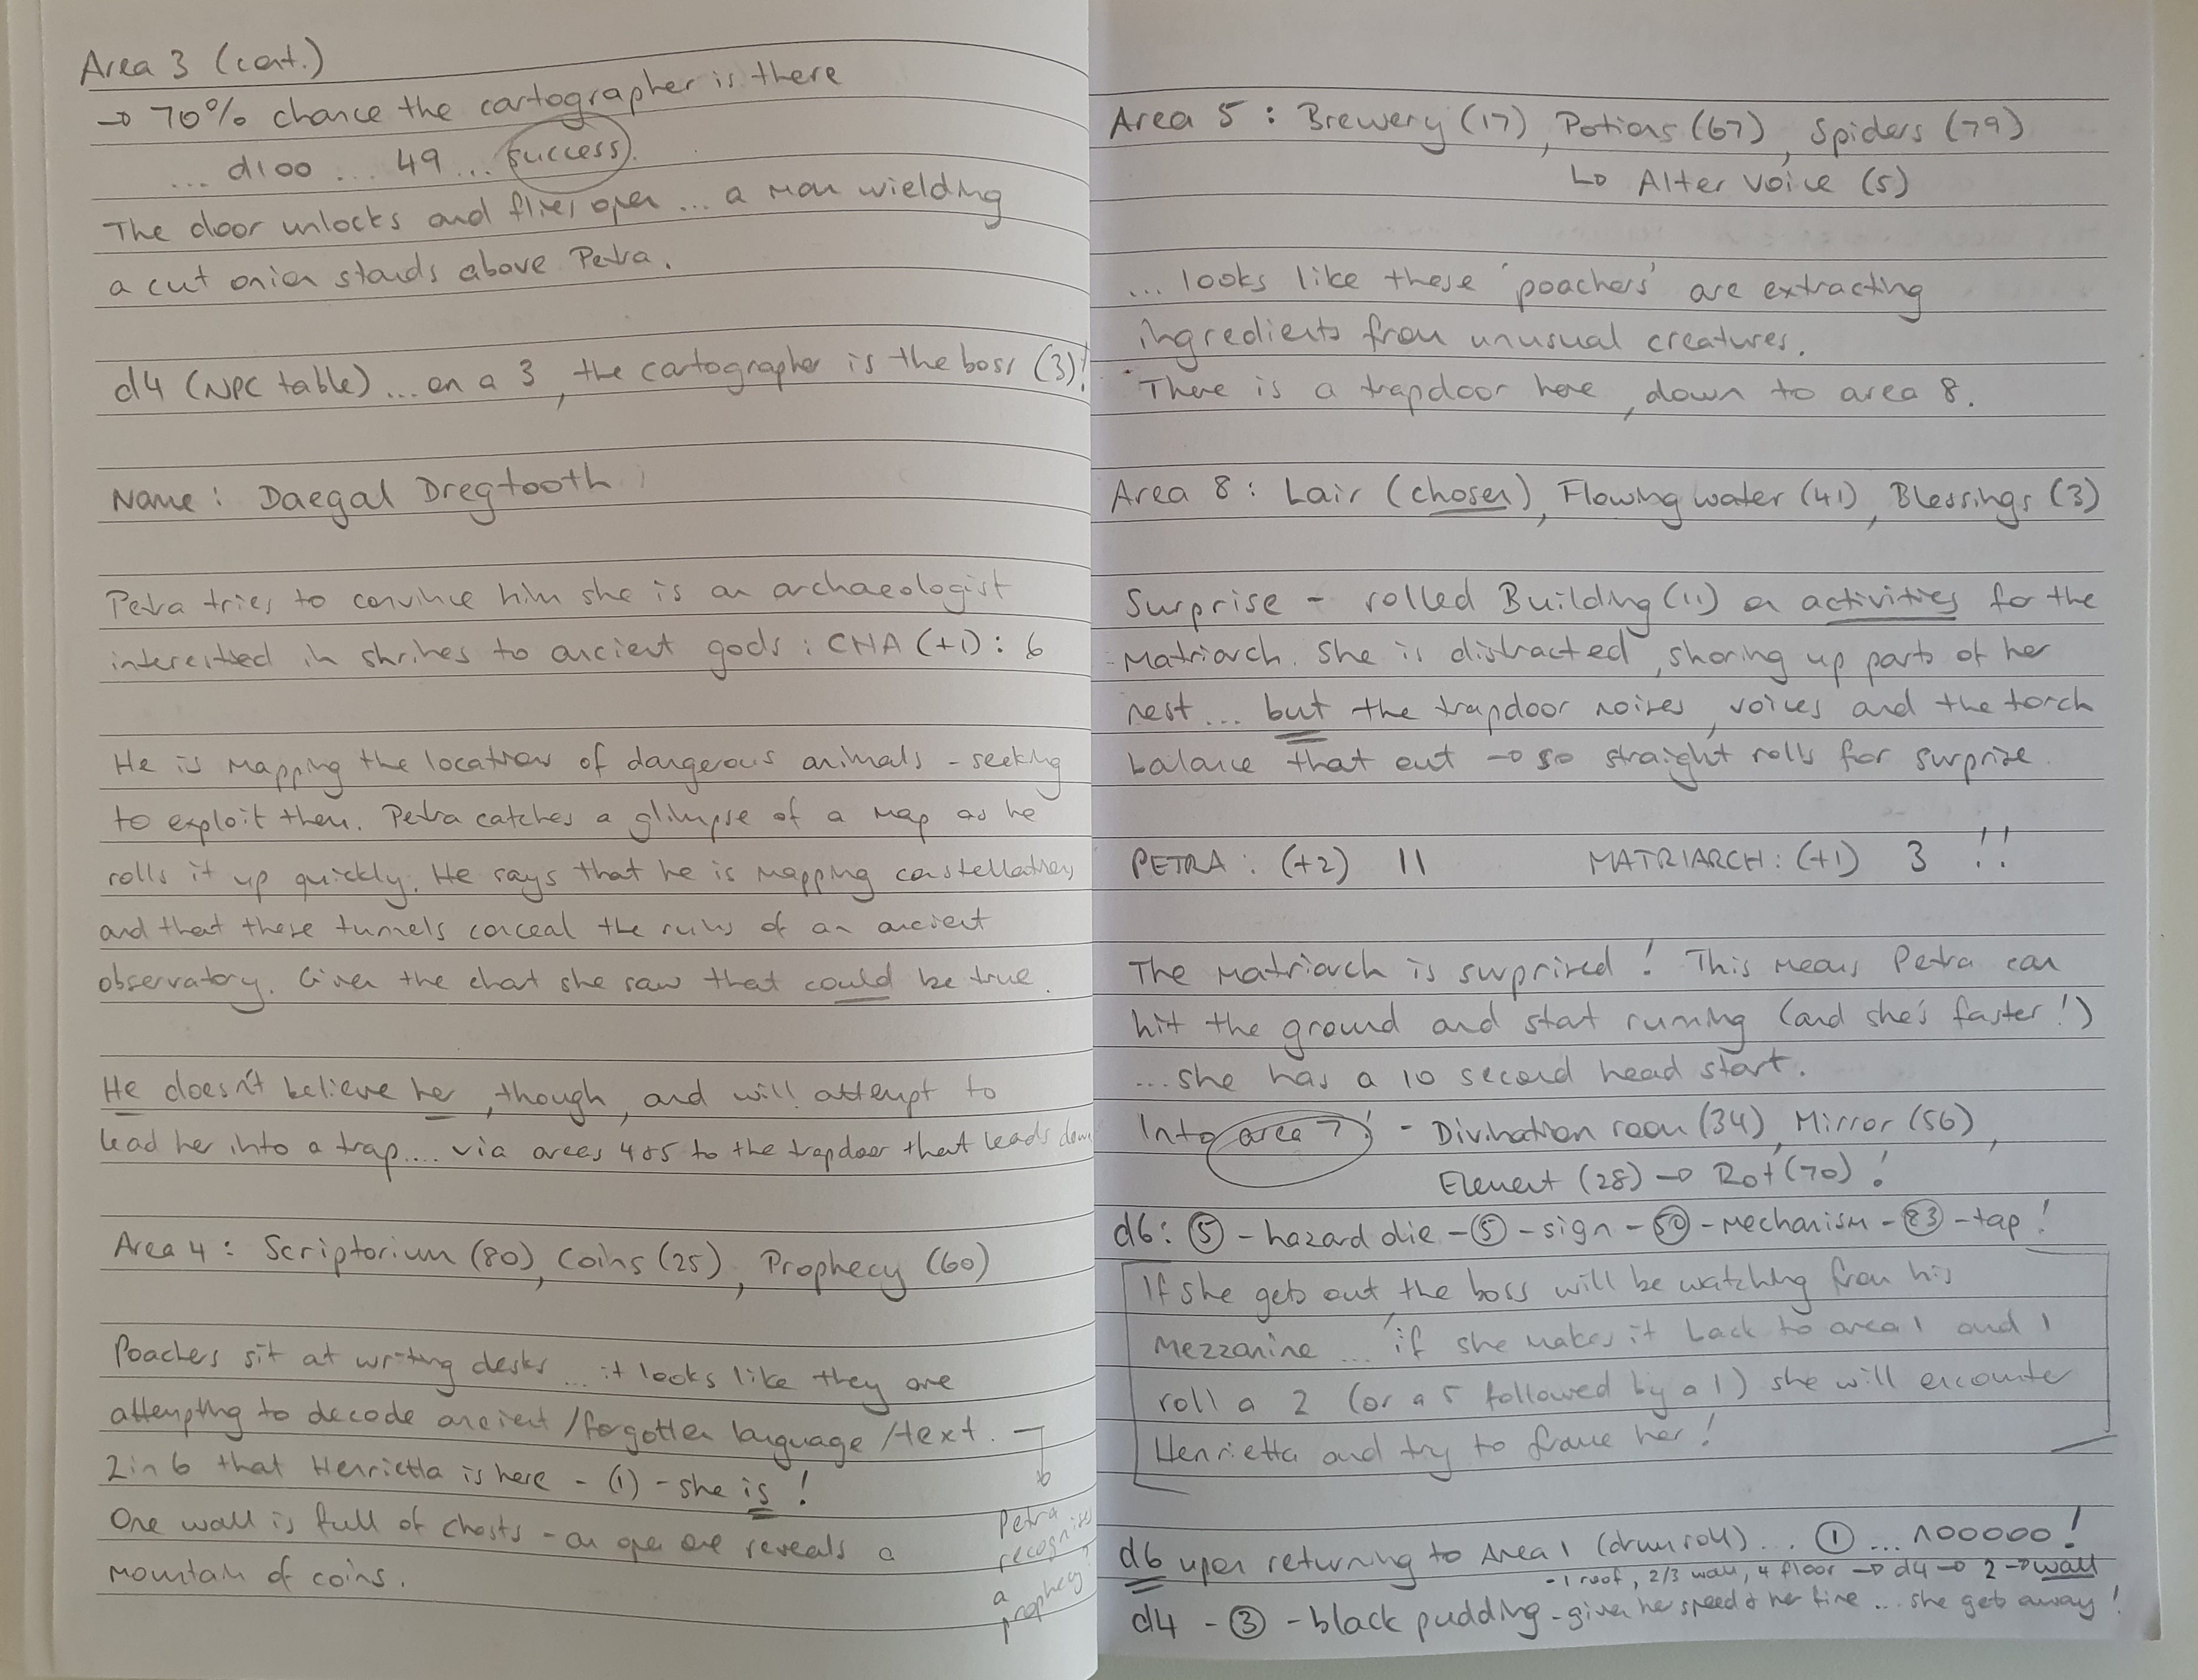 Area 3 (cont.)
→ 70% chance the cartographer is there
... d100 ... 49 ... success.
The door unlocks and flies open ... a man wielding
a cut onion stands above Petra.
d4 (NPC table) ... on a 3, the cartographer is the boss (3)!
Name: Daegal Dregtooth
Petra tries to convince him she is an archaeologist
interested in shrines to ancient gods: CHA (+1): 6
He is mapping the location of dangerous animals - seeking
to exploit them. Petra catches a glimpse of a map as he
rolls it up quickly. He says that he is mapping constellations
and that these tunnels conceal the ruins of an ancient
observatory. Given the chat she saw that could be true.
He doesn't believe her, though, and will attempt to
lead her into a trap.... via areas 4&5 to the trapdoor that leads down
Area 4: Scriptorium (80), Coins (25), Prophecy (60)
Poachers sit at writing desks ... it looks like they are
attempting to decode ancient/forgotten language/text. →
Petra
recognises
a
prophecy!
2 in 6 that Henrietta is here - (1) - she is!
One wall is full of chests - an open one reveals a
mountain of coins.
Area 5: Brewery (17), Potions (67), Spiders (79)
↳ Alter Voice (5)
... looks like these 'poachers' are extracting
ingredients from unusual creatures.
There is a trapdoor here, down to area 8.
Area 8: Lair (chosen), Flowing water (41), Blessings (3)
Surprise - rolled Building (11) on activities for the
Matriarch. She is distracted, shoring up parts of her
nest... but the trapdoor noises, voices and the torch
balance that out → so straight rolls for surprise.
PETRA: (+2) 11 MATRIARCH: (+1) 3 !!
The Matriarch is surprised! This means Petra can
hit the ground and start running (and she's faster!)
...she has a 10 second head start.
Into area 7! - Divination room (34), Mirror (56),
Element (28) → Rot (70)!
d6: 5 - hazard die - 5 - sign - 50 - mechanism - 83 - tap!
If she gets out the boss will be watching from his
mezzanine ... if she makes it back to area 1 and I
roll a 2 (or a 5 followed by a 1) she will encounter
Henrietta and try to frame her!
d6 upon returning to Area 1 (drum roll) ... 1 ... nooooo!
- 1 roof, 2/3 wall, 4 floor → d4 → 2 → wall
d4 - 3 - black pudding - given her speed & her fire ... she gets away!